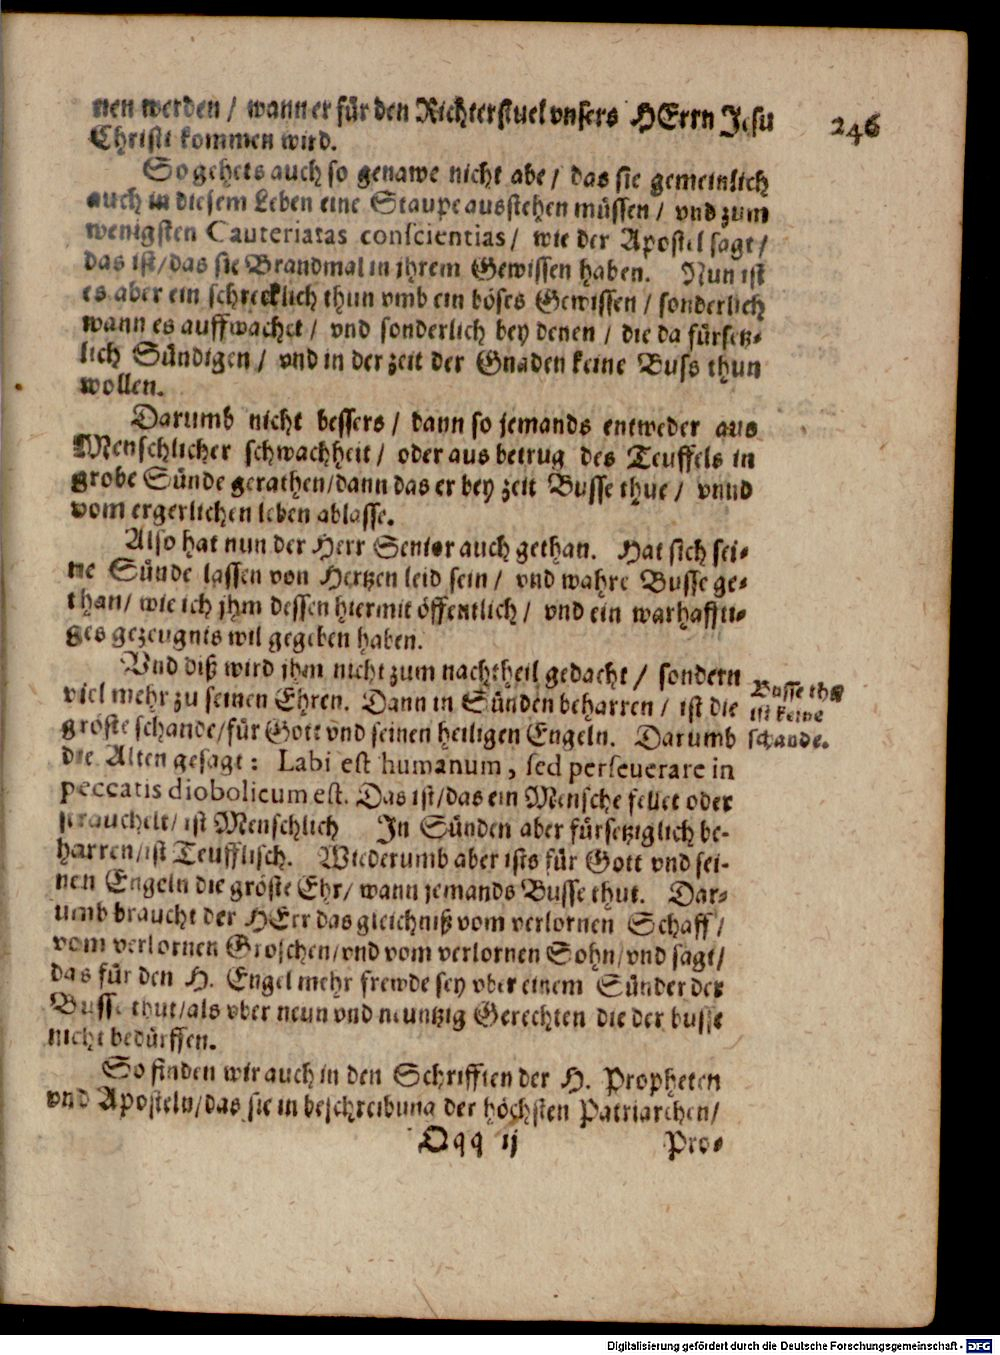 nen werden / wann er für den Richterstuel vnsers HErrn Jesu
246
Christi kommen wird.
So gehets auch so genawe nicht abe / das sie gemeinlich
auch in diesem Leben eine Staupe ausstehen müssen / vnd zum
wenigsten Cauteriatas conscientias / wie der Apostel sagt /
das ist / das sie Brandmal in jhrem Gewissen haben. Nun ist
es aber ein schrecklich thun vmb ein böses Gewissen / sonderlich
wann es auffwachet / vnd sonderlich bey denen / die da fürsetz-
lich Sündigen / vnd in der zeit der Gnaden keine Buss thun
wollen.
Darumb nicht bessers / dann so jemands entweder aus
Menschlicher schwachheit / oder aus betrug des Teuffels in
grobe Sünde gerathen / dann das er bey zeit Busse thue / vnnd
vom ergerlichen leben ablasse.
Also hat nun der Herr Senior auch gethan. Hat sich sei-
ne Sünde lassen von Hertzen leid sein / vnd wahre Busse ge-
than / wie ich jhm dessen hiermit öffentlich / vnd ein warhaffti-
ges gezeugnis wil gegeben haben.
Vnd diß wird jhm nicht zum nachtheil gedacht / sondern
viel mehr zu seinen Ehren. Dann in Sünden beharren / ist die
gröste schande / für Gott vnd seinen heiligen Engeln. Darumb
Busse thũ
ist keine
schande.
die Alten gesagt : Labi est humanum, sed perseuerare in
peccatis diobolicum est. Das ist / das ein Mensche fellet oder
strauchelt / ist Menschlich In Sünden aber fürsetziglich be-
harren / ist Teufflisch. Wiederumb aber ists für Gott vnd sei-
nen Engeln die gröste Ehr / wann jemands Busse thut. Dar-
umb braucht der HErr das gleichniß vom verlornen Schaff /
vom verlornen Groschen / vnd vom verlornen Sohn / vnd sagt /
das für den H. Engel mehr frewde sey vber einem Sünder der
Busse thut / als vber neun vnd neuntzig Gerechten die der busse
nicht bedürffen.
So finden wir auch in den Schrifften der H. Propheten
vnd Aposteln / das sie in beschreibung der höchsten Patriarchen /
Qqq ij
Pro-
Digitalisierung gefördert durch die Deutsche Forschungsgemeinschaft - DFG